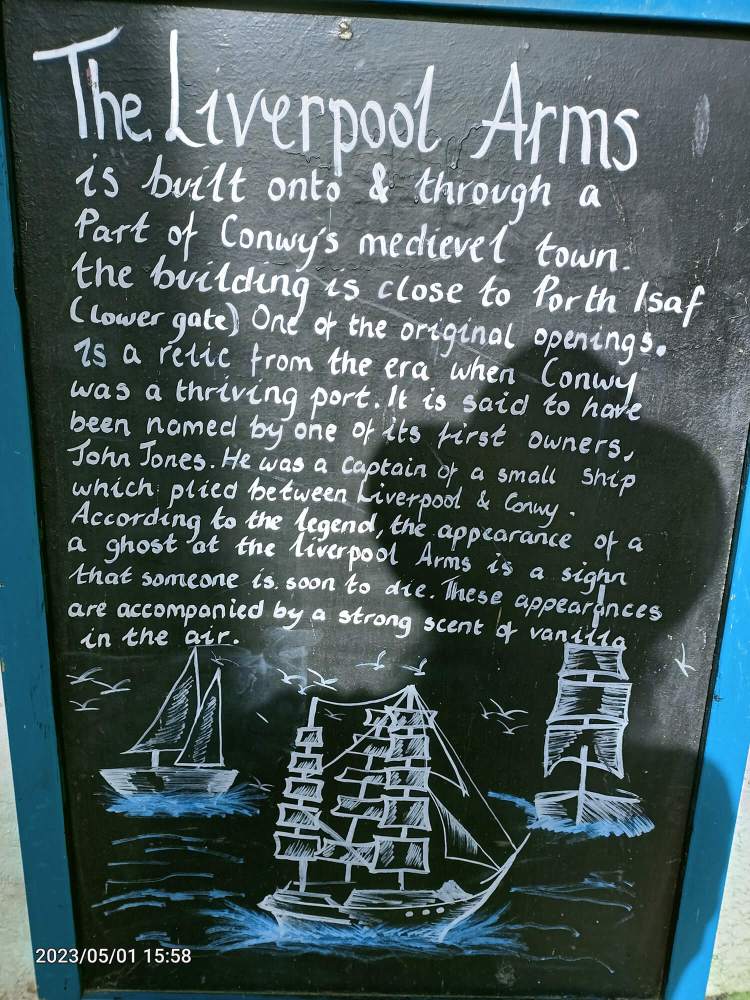 The Liverpool Arms
is built onto & through a
Part of Conwy's medievel town.
the building is close to Porth Isaf
(lower gate) One of the original openings.
Is a relic from the era when Conwy
was a thriving port. It is said to have
been named by one of its first owners,
John Jones. He was a captain of a small ship
which plied between Liverpool & Conwy.
According to the legend, the appearance of a
a ghost at the liverpool Arms is a sighn
that someone is soon to die. These appearances
are accompanied by a strong scent of vanilla
in the air.
2023/05/01 15:58